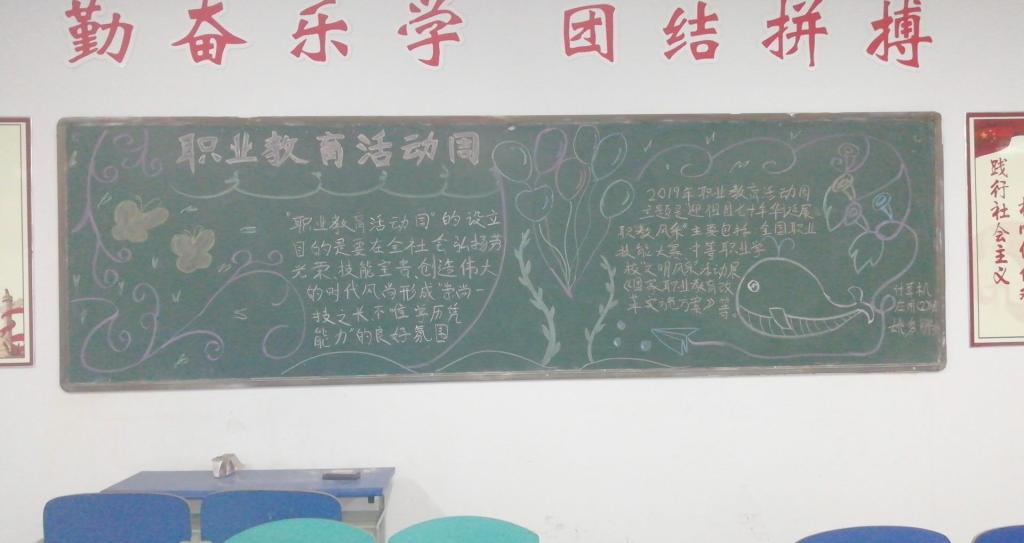 勤奋乐学 团结拼搏
职业教育活动周
"职业教育活动周"的设立
目的是要在全社会弘扬劳
光荣、技能宝贵、创造伟大
的时代风尚形成"崇尚一
技之长不惟学历凭
能力"的良好氛围
2019年职业教育活动周
主题是迎祖国七十年华诞展
职教风采"主要包括:全国职业
技能大赛、中等职业学
校文明风采活动展
《国家职业教育改
革实施方案》等。
计算机
应用
践行社会主义